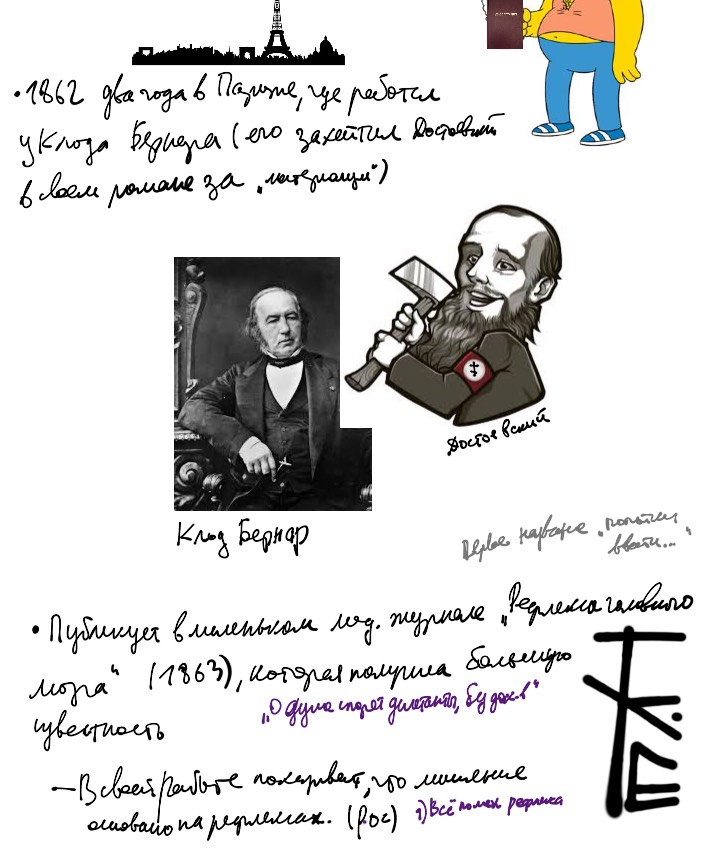 • 1862 два года в Париже, где работал
у Клода Бернара (его захейтил Достоевский
в своем романе за „материащи")
Достоевский
Клод Бернар
Первое название „попытки
ввести..."
• Публикует в маленьком мед. журнале „Рефлексы головного
мозга" (1863), которая получила большую
известность
„О душе спорят дилетанты,
— В своей работе показывает, что мышление
основано на рефлексах. (рос) 1) Всё